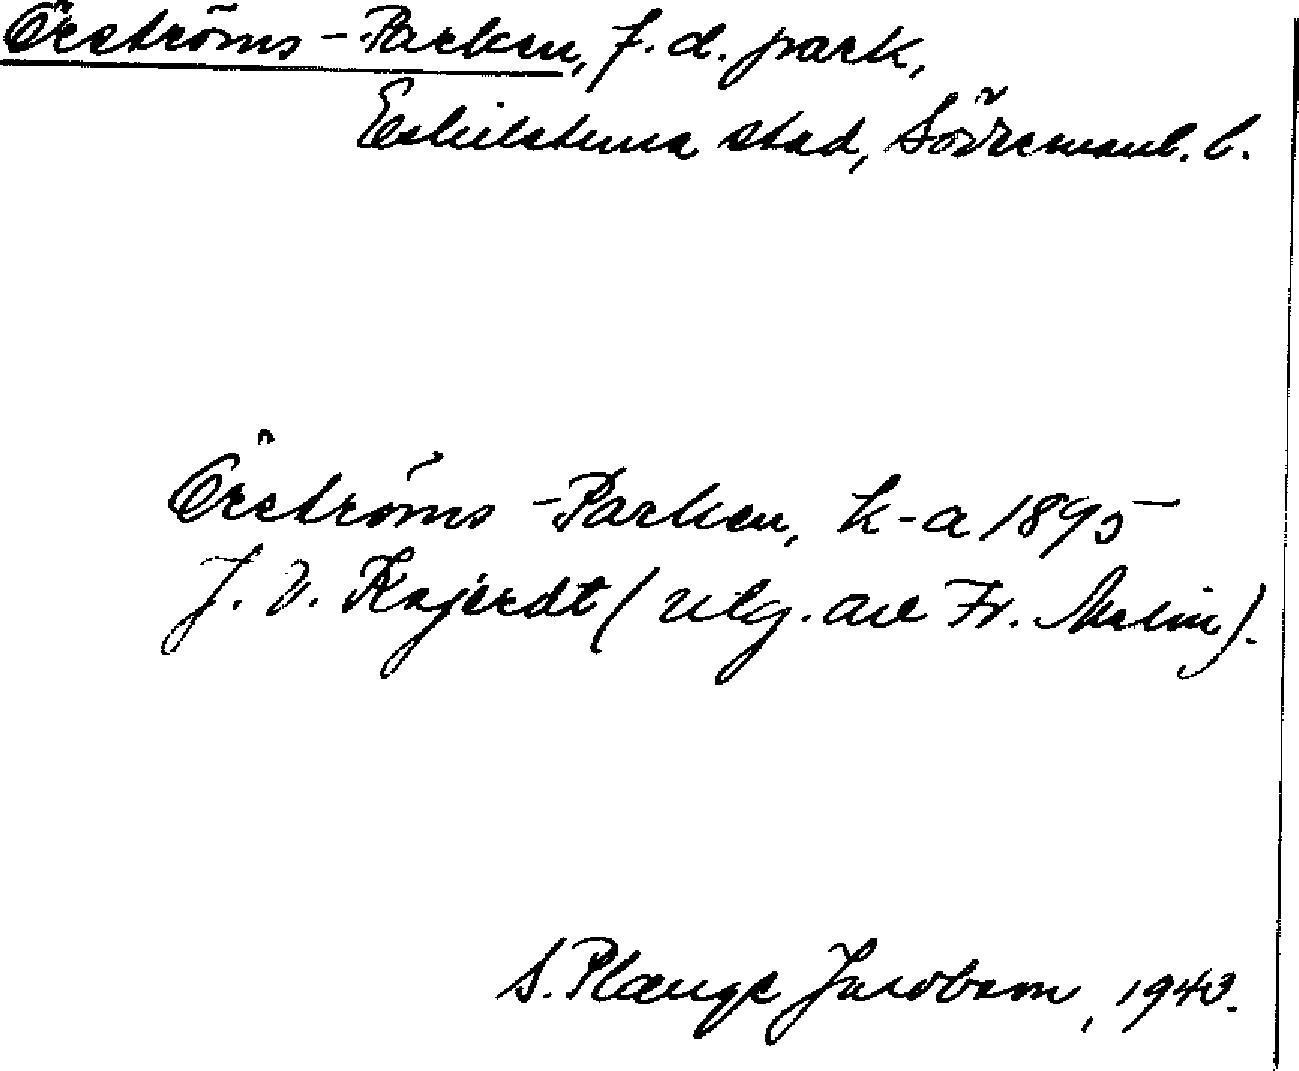 Örströms-Parken, f.d. park,
Eskilstuna stad, Södermanl. l.
Örströms-Parken, k-a 1895
J. V. (utg. av Fr. Malm).
S. Plænge Jacobson, 1943.